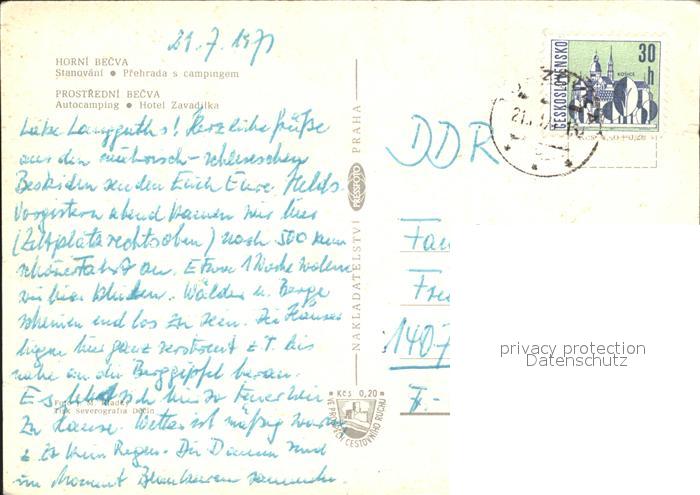 21.7.1971
HORNÍ BEČVA
Stanování ● Přehrada s campingem
PROSTŘEDNÍ BEČVA
Autocamping ● Hotel Zavadilka
Liebe Langguth's! Herzliche Grüße
aus den mährisch-schlesischen
Beskiden senden Euch Eure Helds.
Vorgestern abend kamen wir hier
(Zeltplatz rechts oben) nach 500 km
schöner Fahrt an. Etwa 1 Woche wollen
wir hier bleiben. Wälder u. Berge
scheinen endlos zu sein. Die Häuser
liegen hier ganz verstreut z.T. bis
nahe an die Berggipfel heran.
Es lebt sich hier so
zu Hause. Wetter ist mäßig
z. Zt. kein Regen. Die Damen sind
im Moment Blaubeeren sammeln.
Tisk severografia Děčín
NAKLADATELSTVÍ PRESSFOTO PRAHA
Kčs 0,20
VE PROSPĚCH CESTOVNÍHO RUCHU
ČESKOSLOVENSKO
30 h
KOŠICE
DDR
Fam
1407
privacy protection
Datenschutz